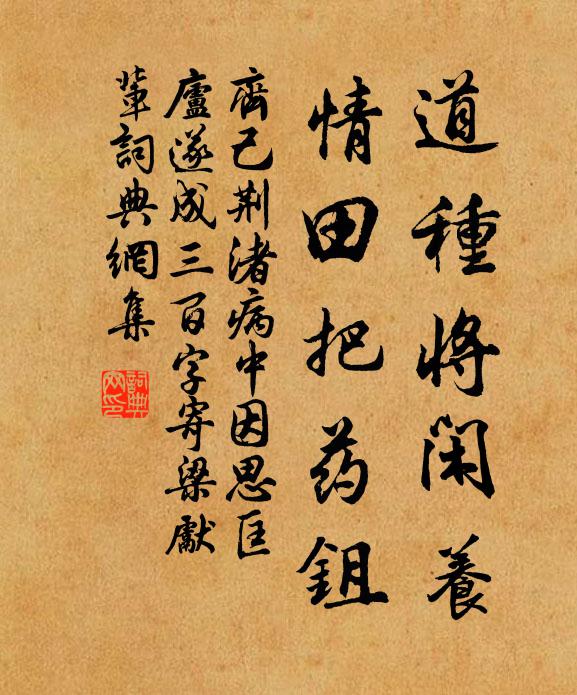 道種将闲養
情田把药鉏
齊己荆渚病中因思匡
廬遂成三百字寄梁獻
輩詞典網集
詞典
网印